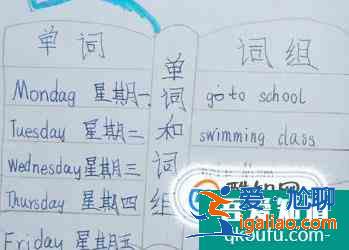 单词
Mondag 星期一
Tuesday 星期二
Wednesday 星期三
Thursday 星期四
Friday 星期五
单词和词组
词组
go to school
swimming class
爱尬聊
igaliao.com
qk9ufu.com